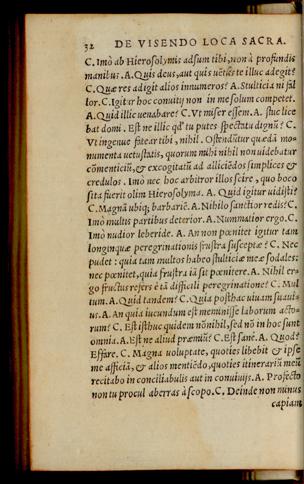 32 DE VISENDO LOCA SACRA.
C. Imò ab Hierosolymis adsum tibi, non à profundis
manibus. A. Quis deus, aut quis uẽtus te illuc adegit?
C. Quæ res adigit alios innumeros? A. Stulticia ni fal
lor. C. Igitur hoc conuitij non in me solum competet.
A. Quid illic uenabare? C. Vt miser essem. A. Istuc lice
bat domi. Est ne illic qd' tu putes spectatu dignũ? C.
Vt ingenue fatear tibi, nihil. Ostendũtur quædã mo-
numenta uetustatis, quorum mihi nihil non uidebatur
cõmenticiũ, & excogitatũ ad alliciẽdos simplices &
credulos. Imò nec hoc arbitror illos scire, quo loco
sita fuerit olim Hierosolyma. A. Quid igitur uidisti?
C. Magnã ubiq; barbariẽ. A. Nihilo sanctior redis? C.
Imò multis partibus deterior. A. Nummatior ergo. C.
Imò nudior leberide. A. An non pœnitet igitur tam
longinquæ peregrinationis frustra susceptæ? C. Nec
pudet: quia tam multos habeo stulticiæ meæ sodales:
nec pœnitet, quia frustra iã sit pœnitere. A. Nihil er-
go fructus refers è tã difficili peregrinatione? C. Mul
tum. A. Quid tandem? C. Quia posthac uiuam suaui-
us. A. An quia iucundum est meminisse laborum acto-
rum? C. Est isthuc quidem nõnihil, sed nõ in hoc sunt
omnia. A. Est ne aliud præmiũ? C. Est sanè. A. Quod?
Effare. C. Magna uoluptate, quoties libebit & ipse
me afficiã, & alios mentiẽdo, quoties itinerariũ meũ
recitabo in conciliabulis aut in conuiuijs. A. Profectò
non tu procul aberras à scopo. C. Deinde non minus
capiam